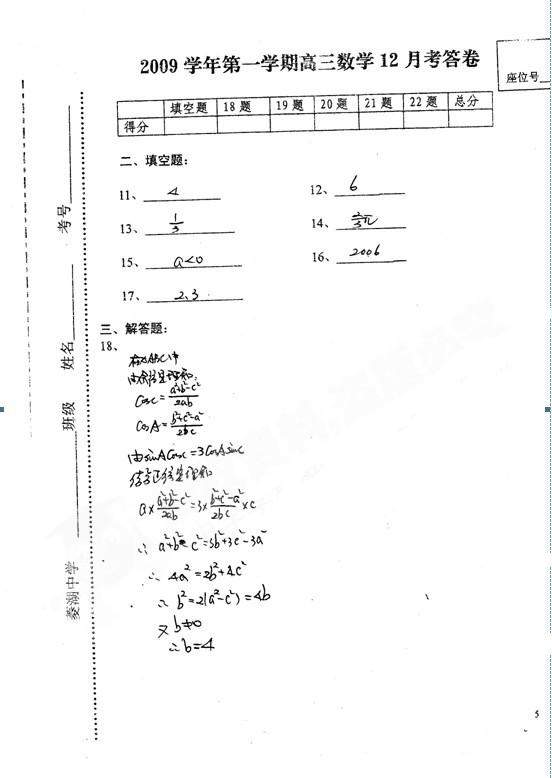 2009 学年第一学期高三数学 12 月考答卷
座位号
填空题 18 题 19 题 20 题 21 题 22 题 总分
得分
二、填空题:
11、 4 12、 6
13、 1/3 14、 2/3π
15、 a<0 16、 2006
17、 2、3
三、解答题:
18、
在△ABC中
由余弦定理知,
cosC = (a²+b²-c²)/2ab
cosA = (b²+c²-a²)/2bc
由sinAcosC = 3cosAsinC
结合正弦定理知
a × (a²+b²-c²)/2ab = 3 × (b²+c²-a²)/2bc × c
∴ a²+b²-c² = 3b²+3c²-3a²
∴ 4a² = 2b²+4c²
∴ b² = 2(a²-c²) = 4b
又 b≠0
∴ b=4
菱湖中学 班级 姓名 考号
5